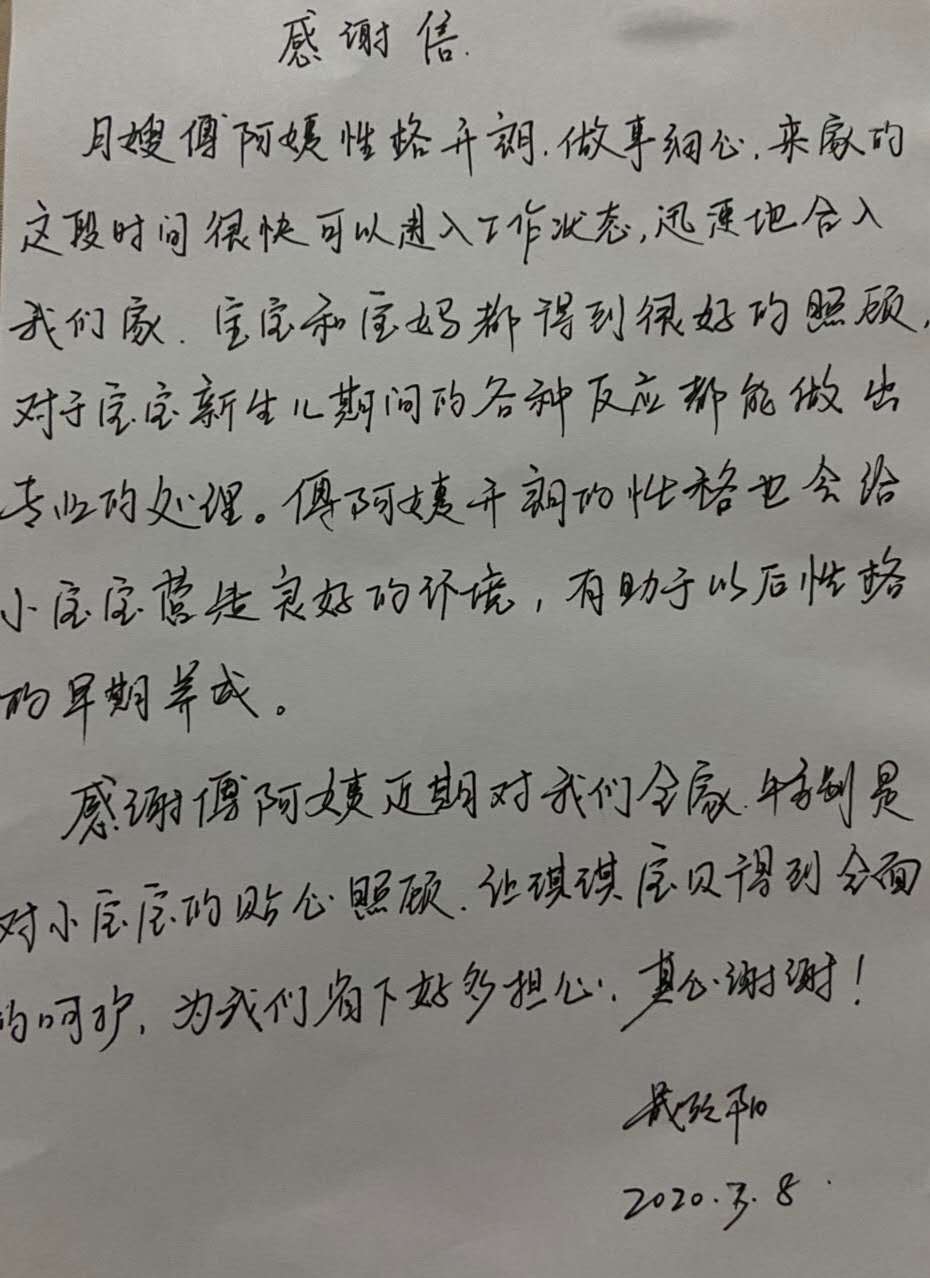 感谢信.
月嫂傅阿姨性格开朗.做事细心.来家的
这段时间很快可以进入工作状态,迅速地合入
我们家.宝宝和宝妈都得到很好的照顾,
对于宝宝新生儿期间的各种反应都能做出
专业的处理。傅阿姨开朗的性格也会给
小宝宝营造良好的环境,有助于以后性格
的早期养成。
感谢傅阿姨近期对我们全家.特别是
对小宝宝的贴心照顾.让琪琪宝贝得到全面
的呵护,为我们省下好多担心.真心谢谢!
2020.3.8